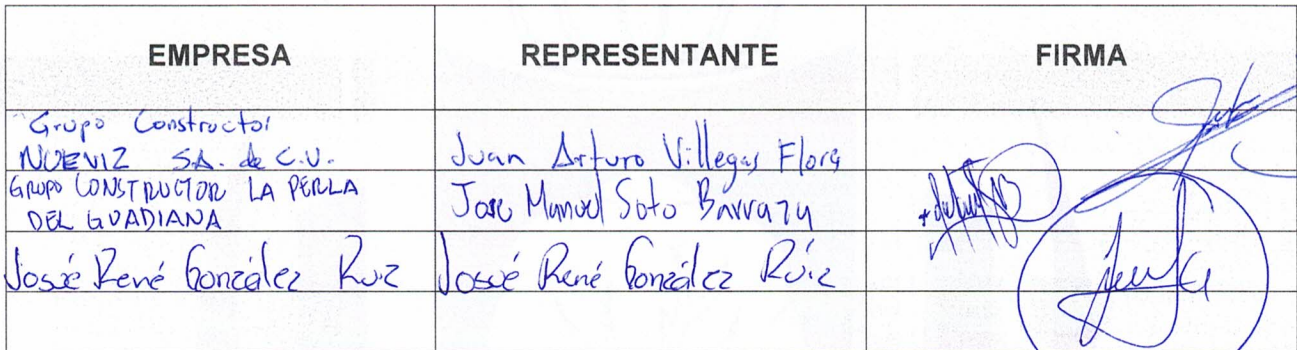 EMPRESA REPRESENTANTE FIRMA
Grupo Constructor
NUEVIZ S.A. de C.V. Juan Arturo Villegas Flores
GRUPO CONSTRUCTOR LA PERLA
DEL GUADIANA Jose Manuel Soto Barraza
Josué René González Ruiz Josué René González Ruíz